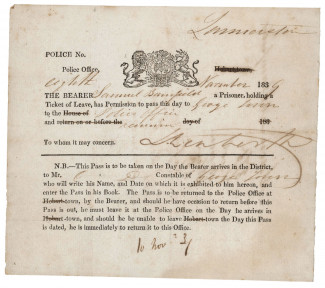 Launceston
POLICE No.
Police Office, Hobart-town,
eighth November 1836
THE BEARER Samuel a Prisoner, holding a
Ticket of Leave, has Permission to pass this day to George Town
to the House of
and return on or before the remain day of 183
To whom it may concern.
N.B.—This Pass is to be taken on the Day the Bearer arrives in the District,
to Mr. Constable of George Town
who will write his Name, and Date on which it is exhibited to him hereon, and
enter the Pass in his Book. The Pass is to be returned to the Police Office at
Hobart-town, by the Bearer, and should he have occasion to return before this
Pass is out, he must leave it at the Police Office on the Day he arrives in
Hobart-town, and should he be unable to leave Hobart-town the Day this Pass
is dated, he is immediately to return it to this Office.
10 Nov